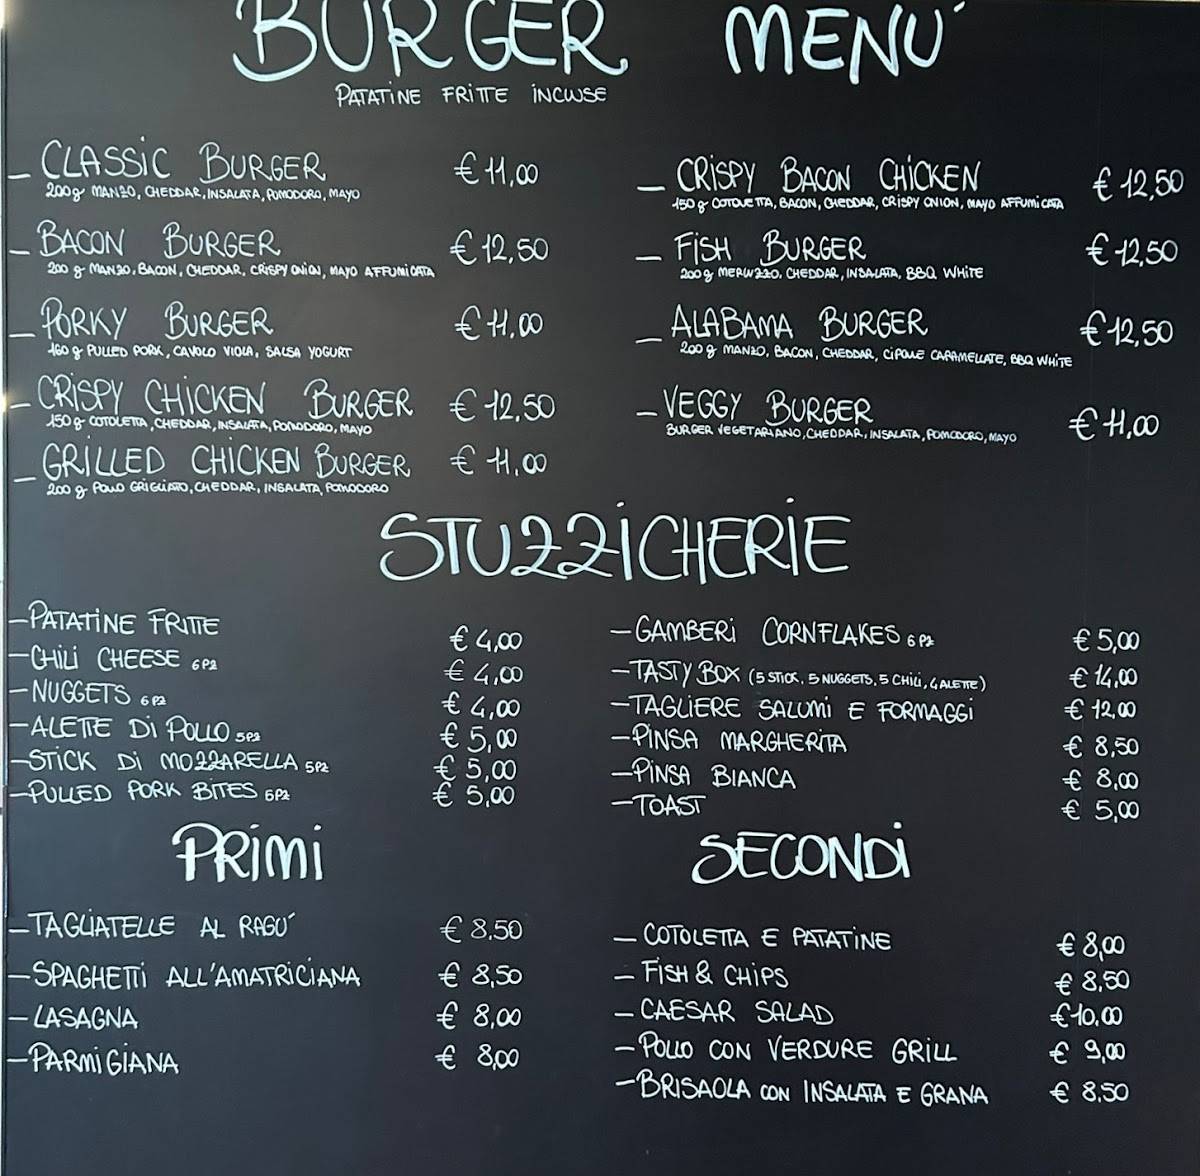 BURGER MENU'
PATATINE FRITTE INCLUSE
- CLASSIC BURGER € 11,00
200g MANZO, CHEDDAR, INSALATA, POMODORO, MAYO
- BACON BURGER € 12,50
200 g MANZO, BACON, CHEDDAR, CRISPY ONION, MAYO AFFUMICATA
- PORKY BURGER € 11,00
160 g PULLED PORK, CAVOLO VIOLA, SALSA YOGURT
- CRISPY CHICKEN BURGER € 12,50
150g COTOLETTA, CHEDDAR, INSALATA, POMODORO, MAYO
- GRILLED CHICKEN BURGER € 11,00
200 g POLLO GRIGLIATO, CHEDDAR, INSALATA, POMODORO
- CRISPY BACON CHICKEN € 12,50
150 g COTOLETTA, BACON, CHEDDAR, CRISPY ONION, MAYO AFFUMICATA
- FISH BURGER € 12,50
200g MERLUZZO, CHEDDAR, INSALATA, BBQ WHITE
- ALABAMA BURGER € 12,50
200 g MANZO, BACON, CHEDDAR, CIPOLLE CARAMELLATE, BBQ WHITE
- VEGGY BURGER € 11,00
BURGER VEGETARIANO, CHEDDAR, INSALATA, POMODORO, MAYO
STUZZICHERIE
- PATATINE FRITTE € 4,00
- CHILI CHEESE 6PZ € 4,00
- NUGGETS 6PZ € 4,00
- ALETTE DI POLLO 5PZ € 5,00
- STICK DI MOZZARELLA 5PZ € 5,00
- PULLED PORK BITES 6PZ € 5,00
- GAMBERI CORNFLAKES 6 PZ € 5,00
- TASTY BOX (5 STICK, 5 NUGGETS, 5 CHILI, 4 ALETTE) € 14,00
- TAGLIERE SALUMI E FORMAGGI € 12,00
- PINSA MARGHERITA € 8,50
- PINSA BIANCA € 8,00
- TOAST € 5,00
PRIMI
- TAGLIATELLE AL RAGU' € 8,50
- SPAGHETTI ALL'AMATRICIANA € 8,50
- LASAGNA € 8,00
- PARMIGIANA € 8,00
SECONDI
- COTOLETTA E PATATINE € 8,00
- FISH & CHIPS € 8,50
- CAESAR SALAD €10,00
- POLLO CON VERDURE GRILL € 9,00
- BRISAOLA CON INSALATA E GRANA € 8,50